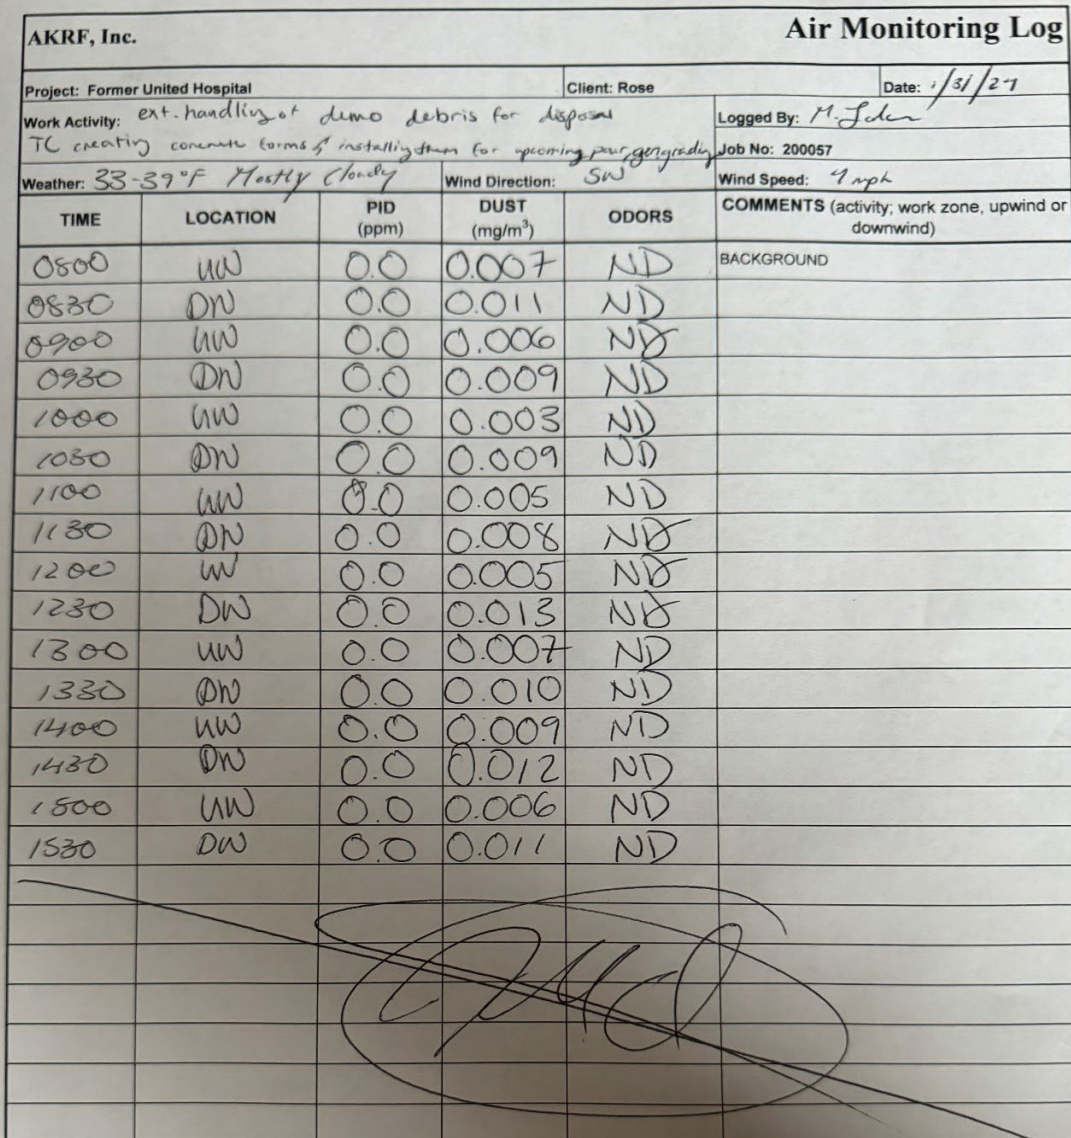 AKRF, Inc. Air Monitoring Log
Project: Former United Hospital Client: Rose Date: 1/31/
Work Activity: ext. handling of demo debris for disposal Logged By: M.
TC creating concrete forms & installing them for upcoming pour, gengrading Job No: 200057
Weather: 33-39°F Mostly Cloudy Wind Direction: SW Wind Speed: mph
TIME LOCATION PID (ppm) DUST (mg/m³) ODORS COMMENTS (activity; work zone, upwind or downwind)
0800 UW 0.0 0.007 ND BACKGROUND
0830 DW 0.0 0.011 ND
0900 UW 0.0 0.006 ND
0930 DW 0.0 0.009 ND
1000 UW 0.0 0.003 ND
1030 DW 0.0 0.009 ND
1100 UW 0.0 0.005 ND
1130 DW 0.0 0.008 ND
1200 UW 0.0 0.005 ND
1230 DW 0.0 0.013 ND
1300 UW 0.0 0.007 ND
1330 DW 0.0 0.010 ND
1400 UW 0.0 0.009 ND
1430 DW 0.0 0.012 ND
1500 UW 0.0 0.006 ND
1530 DW 0.0 0.011 ND